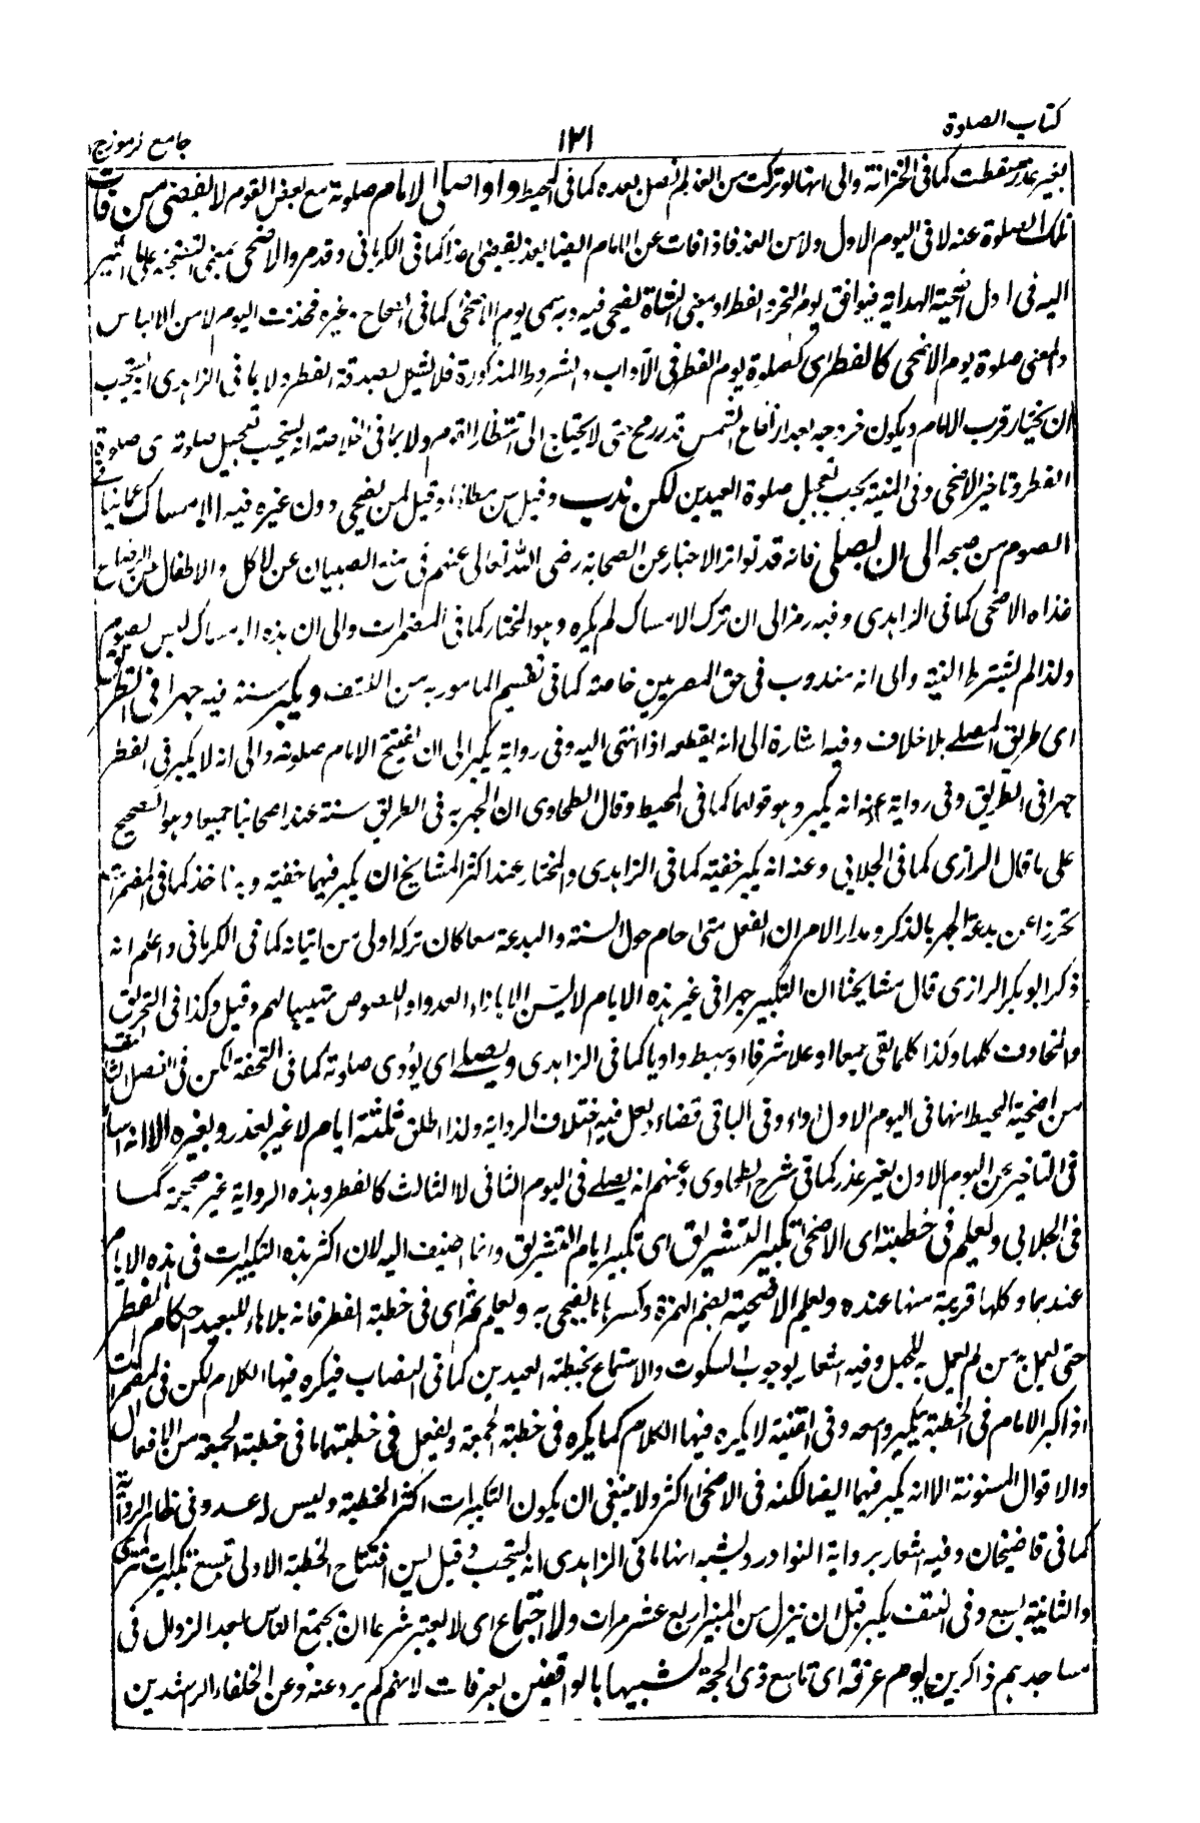 كتاب الصلوة
١٢١
جامع الرموز ج١
بغير عذر سقطت كما فى الخزانة والى انها لو تركت من الغد لم تصل بعده كما فى المحيط واذا صلى الامام صلوته مع بعض القوم لا يقضى من فات
تلك الصلوة عنه لا فى اليوم الاول ولا من الغد فاذا فات عن الامام ايضا بعذر يقضى غدا كما فى الكرمانى وقد مر والاضحى بمعنى التضحية على
اليه فى اول اضحية الهداية فيوافق يوم النحر والفطر او معنى الشاة يضحى فيه وبه سمى يوم الاضحى كما فى الصحاح وغيره فحذف اليوم لامن الالباس
والمعنى صلوة يوم الاضحى كالفطر اى كصلوة يوم الفطر فى الآداب والشروط المذكورة فلا يشكل بصدقة الفطر ولا بما فى الزاهدى انه يستحب
ان يختار قرب الامام ويكون خروجه بعد ارتفاع الشمس قدر رمح حتى لا يحتاج الى انتظار القوم ولا بما فى الخلاصة انه يستحب تعجيل صلوته اى صلوة
الفطر وتاخير الاضحى وفى المنية يجب تعجيل صلوة العيدين لكن ندب وقيل سن مطلقا وقيل لمن يضحى دون غيره فيه الامساك عما ينافى
الصوم من صبحه الى ان يصلى فانه قد تواتر الاخبار عن الصحابة رضى الله تعالى عنهم فى منع الصبيان عن الاكل والاطفال عن الرضاع
غداة الاضحى كما فى الزاهدى وفيه رمز الى ان ترك الامساك لم يكره وهو المختار كما فى المضمرات والى ان هذه الامساك ليس بصوم
ولذا لم يشترط النية والى انه مندوب فى حق المصريين خاصة كما فى تقسيم المامور به من الكشف ويكبر سنة فيه جهرا فى الطريق
اى طريق المصلى بلا خلاف وفيه اشارة الى انه يقطعه اذا انتهى اليه وفى رواية يكبر الى ان يفتتح الامام صلوته والى انه لا يكبر فى الفطر
جهرا فى الطريق وفى رواية عنه انه يكبر وهو قولهما كما فى المحيط وقال الطحاوى ان الجهر به فى الطريق سنة عند اصحابنا جميعا وهو الصحيح
على ما قال الرازى كما فى الجلابى وعنه انه يكبر خفية كما فى الزاهدى والمختار عند اكثر المشايخ ان يكبر فيهما خفية وبه ناخذ كما فى المضمرات
تحرزا عن بدعة الجهر بالذكر ومدار الامر ان الفعل متى حام حول السنة والبدعة معا كان تركه اولى من اتيانه كما فى الكرمانى واعلم انه
ذكر ابو بكر الرازى قال مشايخنا ان التكبير جهرا فى غير هذه الايام لا يسن الا بازاء العدو او اللصوص تهييبا لهم وقيل وكذا فى الحريق
والمخاوف كلها وكذا كلما لقى جمعا او علا شرفا او هبط واديا كما فى الزاهدى ويصلى اى يؤدى صلوته كما فى التحفة لكن فى الفصل الثالث
من اضحية المحيط انها فى اليوم الاول اداء وفى الباقى قضاء ولعل فيه اختلاف الرواية ولذا اطلق ثلثة ايام لا غير بعذر وبغيره الا انه اساء
فى التاخير عن اليوم الاول بغير عذر كما فى شرح الطحاوى وعنهم انه يصلى فى اليوم الثانى لا الثالث كالفطر وهذه الرواية غير صحيحة كما
فى الجلابى ويعلم فى خطبته اى الاضحى تكبير التشريق اى تكبير ايام التشريق وانما اضيف اليه لان اكثر هذه التكبيرات فى هذه الايام
عندهما وكلها قريبة منها عنده ويعلم الاضحية بضم الهمزة وكسرها ما يضحى به ويعلم ثم اى فى خطبة الفطر فانه بلا هاء للبعيد احكام الفطر
حتى يعمل به من لم يعمل به للجهل وفيه اشعار بوجوب السكوت والاستماع بخطبة العيدين كما فى النصاب فيكره فيها الكلام لكن فى المضمرات
اذا كبر الامام فى الخطبة يكبر وامعه وفى القنية لا يكره فيها الكلام كما يكره فى خطبة الجمعة ويفعل فى خطبتهما ما فى خطبة الجمعة من الافعال
والاقوال المسنونة الا انه يكبر فيهما ايضا لكنه فى الاضحى اكثر ولا ينبغى ان يكون التكبيرات اكثر الخطبة وليس له عدد فى ظاهر الرواية
كما فى قاضيخان وفيه اشعار برواية النوادر ويشبه انها ما فى الزاهدى انه يستحب وقيل يسن افتتاح الخطبة الاولى بتسع تكبيرات تترى
والثانية بسبع وفى النتف يكبر قبل ان ينزل من المنبر اربع عشر مرات ولا اجتماع اى لا يعتبر شرعا ان يجتمع الناس بعد الزوال فى
مساجدهم ذاكرين يوم عرفة اى تاسع ذى الحجة تشبيها بالواقفين بعرفات لانهم لم يرد عنه وعن الخلفاء الراشدين